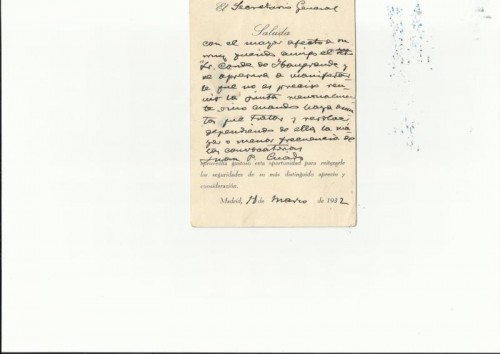 El Secretario General
Saluda
con el mayor afecto a su
muy querido amigo el
Sr. Conde de
y
se apresura a manifestar
le que no es preciso reu
nir la Junta mensualmen
te sino cuando haya asun
tos que tratar y resolver
dependiendo de ellos la ma
yor o menor frecuencia de
las convocatorias
Juan P.
aprovecha gustoso esta oportunidad para reiterarle
las seguridades de su más distinguido aprecio y
consideración.
Madrid, de Marzo de 1942